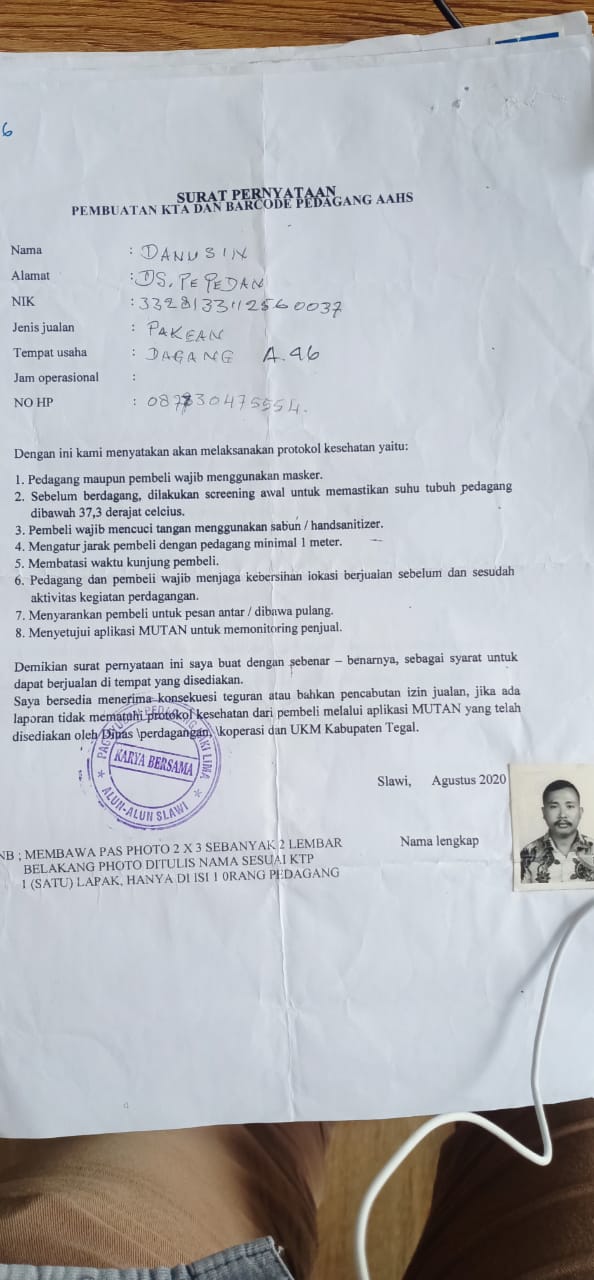 6
SURAT PERNYATAAN
PEMBUATAN KTA DAN BARCODE PEDAGANG AAHS
Nama : DANUSIN
Alamat : DS. PEPEDAN
NIK : 3328133112560037
Jenis jualan : PAKEAN
Tempat usaha : DAGANG A.46
Jam operasional :
NO HP : 087830475554.
Dengan ini kami menyatakan akan melaksanakan protokol kesehatan yaitu:
1. Pedagang maupun pembeli wajib menggunakan masker.
2. Sebelum berdagang, dilakukan screening awal untuk memastikan suhu tubuh pedagang
dibawah 37,3 derajat celcius.
3. Pembeli wajib mencuci tangan menggunakan sabun / handsanitizer.
4. Mengatur jarak pembeli dengan pedagang minimal 1 meter.
5. Membatasi waktu kunjung pembeli.
6. Pedagang dan pembeli wajib menjaga kebersihan lokasi berjualan sebelum dan sesudah
aktivitas kegiatan perdagangan.
7. Menyarankan pembeli untuk pesan antar / dibawa pulang.
8. Menyetujui aplikasi MUTAN untuk memonitoring penjual.
Demikian surat pernyataan ini saya buat dengan sebenar – benarnya, sebagai syarat untuk
dapat berjualan di tempat yang disediakan.
Saya bersedia menerima konsekuesi teguran atau bahkan pencabutan izin jualan, jika ada
laporan tidak mematahi protokol kesehatan dari pembeli melalui aplikasi MUTAN yang telah
disediakan oleh Dinas \perdagangan, \koperasi dan UKM Kabupaten Tegal.
KARYA BERSAMA
ALUN-ALUN SLAWI
Slawi, Agustus 2020
Nama lengkap
NB ; MEMBAWA PAS PHOTO 2 X 3 SEBANYAK 2 LEMBAR
BELAKANG PHOTO DITULIS NAMA SESUAI KTP
1 (SATU) LAPAK, HANYA DI ISI 1 0RANG PEDAGANG